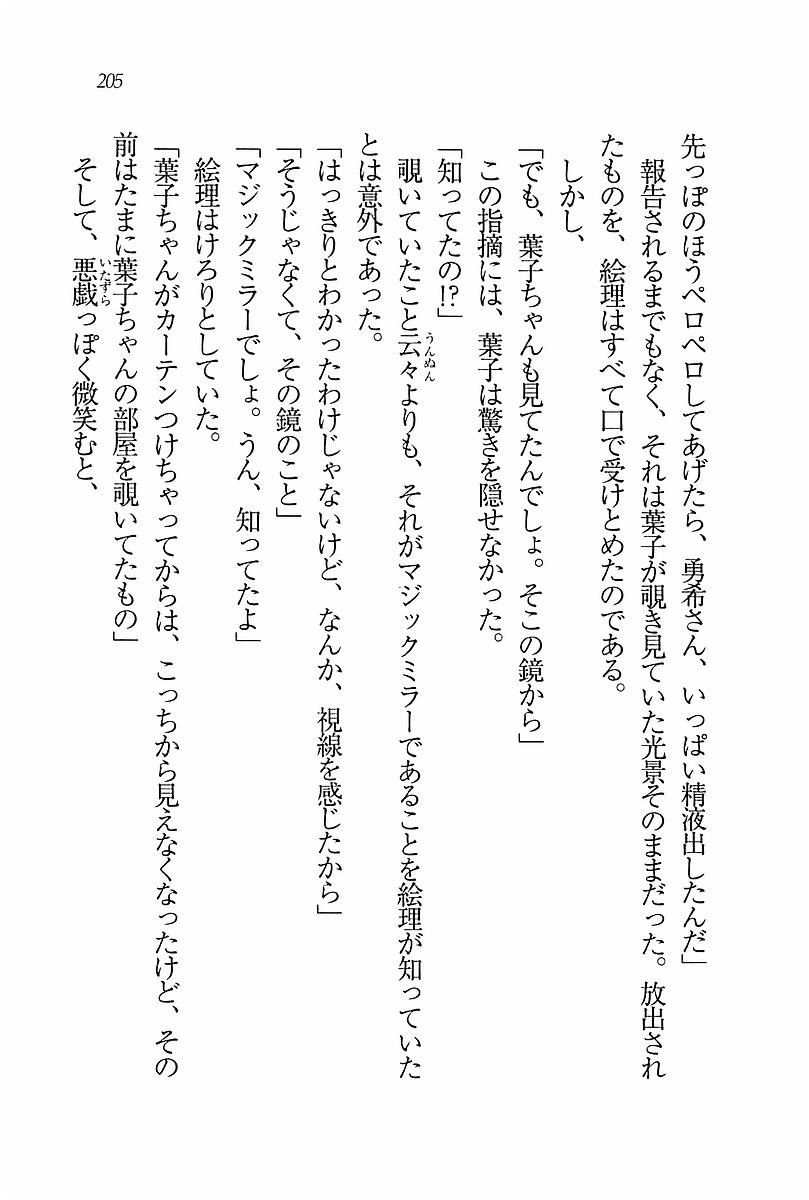 205
先っぽのほうペロペロしてあげたら、勇希さん、いっぱい精液出したんだ」
報告されるまでもなく、それは葉子が覗き見ていた光景そのままだった。放出され
たものを、絵理はすべて口で受けとめたのである。
しかし、
「でも、葉子ちゃんも見てたんでしょ。そこの鏡から」
この指摘には、葉子は驚きを隠せなかった。
「知ってたの!?」
覗いていたこと云々うんぬんよりも、それがマジックミラーであることを絵理が知っていた
とは意外であった。
「はっきりとわかったわけじゃないけど、なんか、視線を感じたから」
「そうじゃなくて、その鏡のこと」
「マジックミラーでしょ。うん、知ってたよ」
絵理はけろりとしていた。
「葉子ちゃんがカーテンつけちゃってからは、こっちから見えなくなったけど、その
前はたまに葉子ちゃんの部屋を覗いてたもの」
そして、悪戯いたずらっぽく微笑むと、